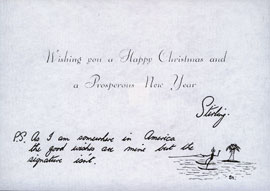 Wishing you a Happy Christmas and
a Prosperous New Year
Stirling.
P.S. As I am somewhere in America
the good wishes are mine but the
signature isn't.